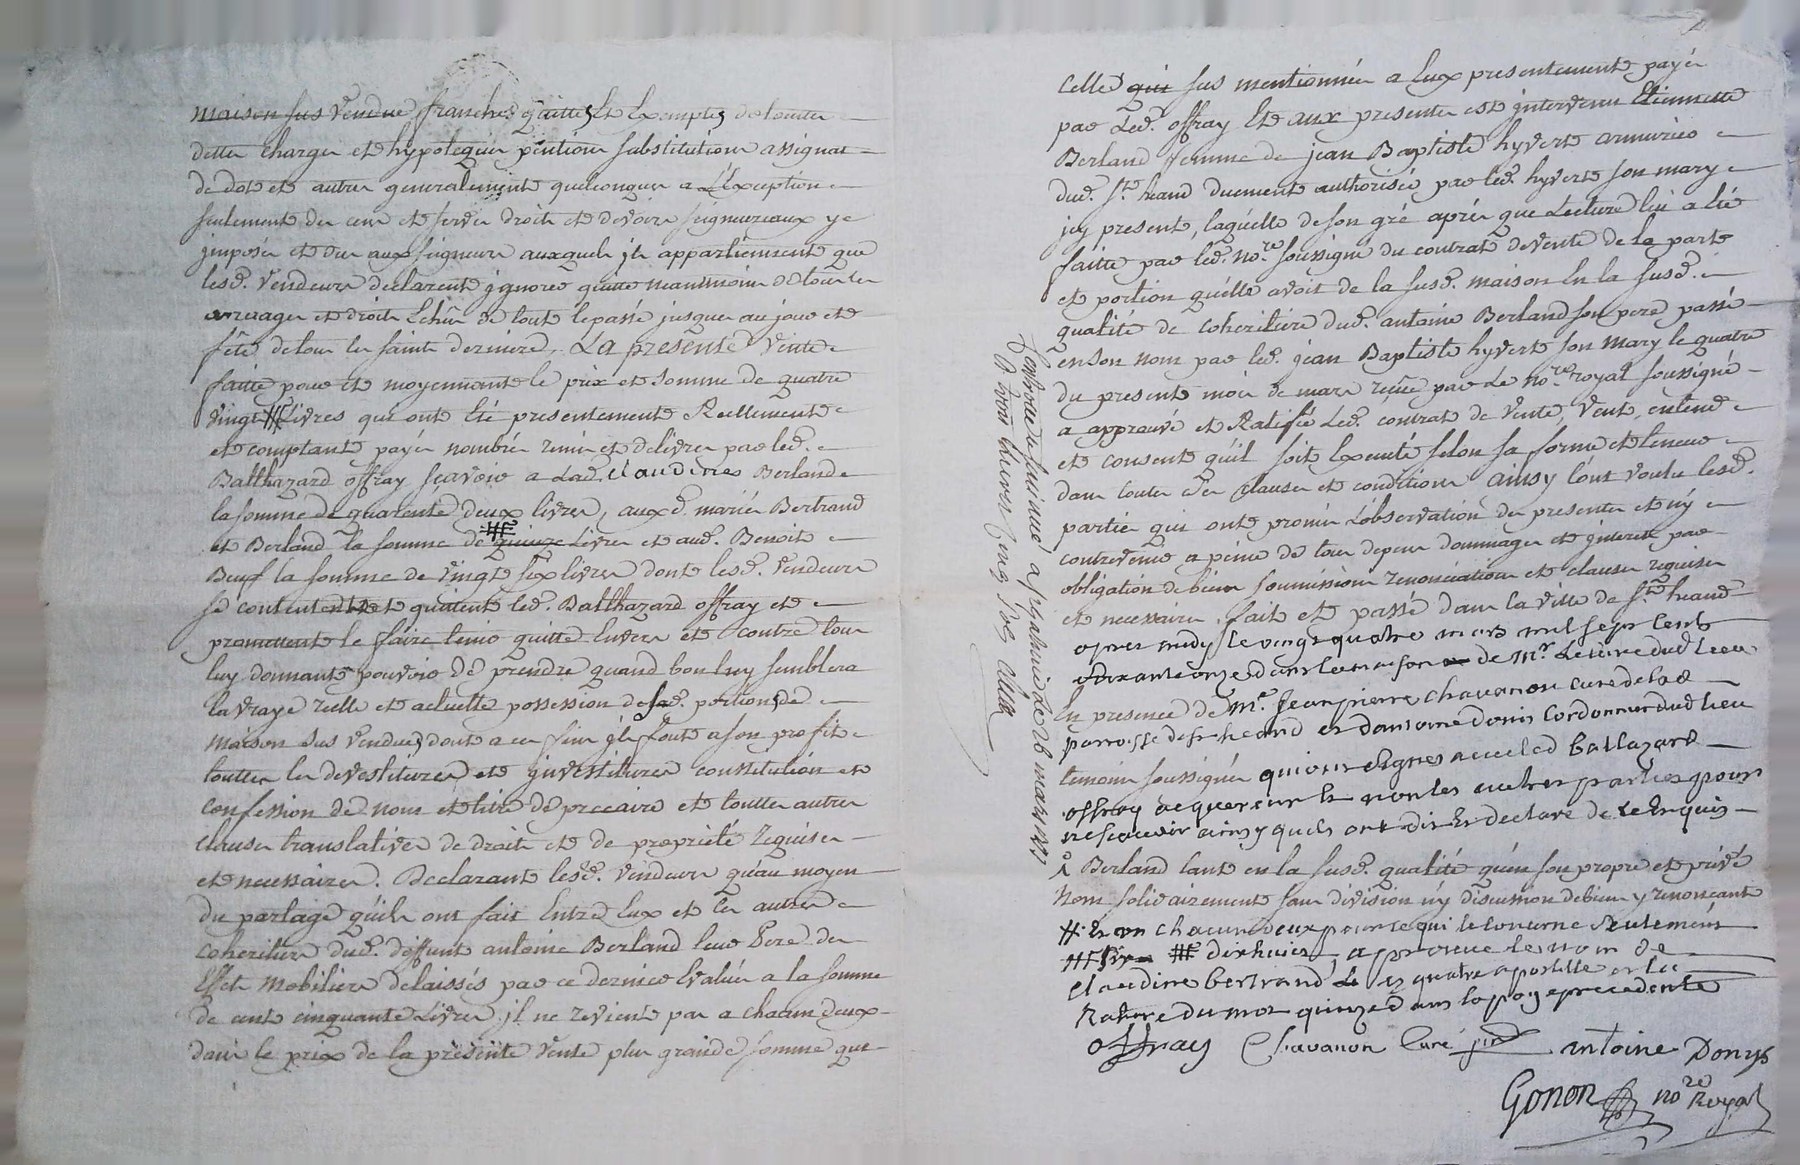 maison sus vendue franche, quittes et Exemptes de toutte
dettes charges et hypoteques pentions substitutions assignat
de dot et autres generalement quelconques a L'Exception
seulement des cens et servis droits et devoirs seigneuriaux y
imposés et dus aux seigneurs auxquels ils appartiennent que
lesd. vendeurs declarent jgnorer quitte neanmoins de tous les
arrerages et droits Echûs de tout le passé jusques au jour et
fête de tous les saints derniere, La presente vente
faitte pour et moyennant le prix et somme de quatre
vingt # Livres qui ont Eté presentement Reellement
et comptant payés nombrés remis et delivrés par led.
Balthazard offray sçavoir a Lad. claudine Berland
la somme de quarente deux livres, auxd. mariés Bertrand
et Berland la somme de quinze Livres et aud. Benoit
Beuf la somme de vingt six livres dont lesd. vendeurs
se contentent et quittent led. Balthazard offray et
promettent le faire tenir quitte Envers et contre tous
luy donnant pouvoir de prendre quand bon luy semblera
la vraye reelle et actuelle possession desd. portions de
maison sus vendues dont a ces fins ils font a son profit
touttes les devestitures et jnvestitures constitution et
confession de nom et titre de precaire et touttes autres
clauses translatives de droits et de proprieté requises
et necessaires. Declarant lesd. vendeurs qu'au moyen
du partage qu'ils ont fait Entre Eux et les autres
coheritiers dud. deffunt antoine Berland leur Pere des
Effets mobiliers delaissés par ce dernier Evalués a la somme
de cent cinquante Livres il ne revient pas a chacun deux
dans le prix de la presente vente plus grande somme que
Celle qui sus mentionnée a Eux presentement payée
par Led. offray Et aux presentes est intervenu Etiennette
Berland femme de jean Baptiste hyvert armurier
dud. St. heand duement authorisée par led. hyvert son mary
icy present, laquelle de son gré aprés que Lecture lui a Eté
faitte par led. nore. soussigné du contrat de vente de la part
et portion qu'elle avoit de la susd. maison En la susd.
qualité de coheritiere dud. antoine Berland son pere passé
en son nom par led. jean Baptiste hyvert son mary le quatre
du present mois de mars reçue par Le nore. royal soussigné
a approuvé et Ratifié Led. contrat de vente, veut, entend
et consent qu'il soit Executé selon sa forme et teneur
dans touttes ces clauses et conditions ainsy l'ont voulu lesd.
parties qui ont promis L'observation des presentes et n'y
contrevenir a peine de tous depens dommages et interets par
obligation de biens soumissions renonciations et clauses requises
et necessaires. fait et passé dans la ville de St. heand
apres midy le vingt quatre mars mil sept cent
soixante onze dans la maison de Mr. Le curé dud Lieu
En presence de Mre. Jean pierre chavanon curé de lad
parroisse de st heand et d'antoine donis Cordonnier dud lieu
temoins soussignés qui ont signes avec led baltazard
offray acquereur et non les autres parties pour
ne scavoir ainsy quels ont dit Et declaré de ce Enquis
Berland tant en la susd. qualité qu'en son propre et privé
Nom solidairement sans division n'y discution de biens y renonceant
# Et on chacun deux pour ce qui le concerne seulement
# dixhuict approuve le nom de
claudine bertrand Les quatre apostille et la
Rature du mot quinze dans la page precedente
offray Chavanon Curé antoine Donys
Gonon nore Royal
Controllé et insinué a st heand le 28 mars 1771